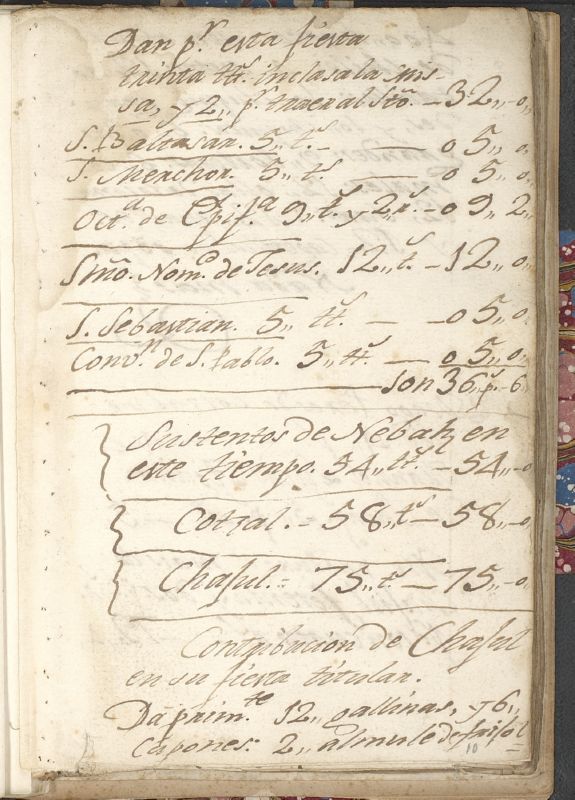 Dan p.r esta fiesta
trinta tt.s inclasa la mis-
sa, y 2,, p.r traer al Sto. – 32,,-o,,
S. Baltasar. 5,, t.s – — o 5,, o,,
S. Merchor. 5,, t.s — o 5,, o,,
Oct.a de Epif.a 9,,t.s y 2,,r.s - o 9,, 2,,
Smô. Nom.e de Jesus. 12,, t.s – 12,, o,,
S. Sebastian. 5,, tt.s — – o 5,, o,,
Conv.n de S. Pablo. 5,, tt.s — o 5,, o,,
Son 36,,p.s - 6
Sustentos de Nebah, en
este tiempo. 54,, tt.s – 54,,-o
Cotzal. – 58,, t.s – 58,,-o
Chaful. = 75,, t.s – 75,,-o,,
Contribucion de Chaful
en su fiesta titular.
Dâ prim.te 12,, gallinas, y 6,,
Capones. 2,, almule de frisol
10